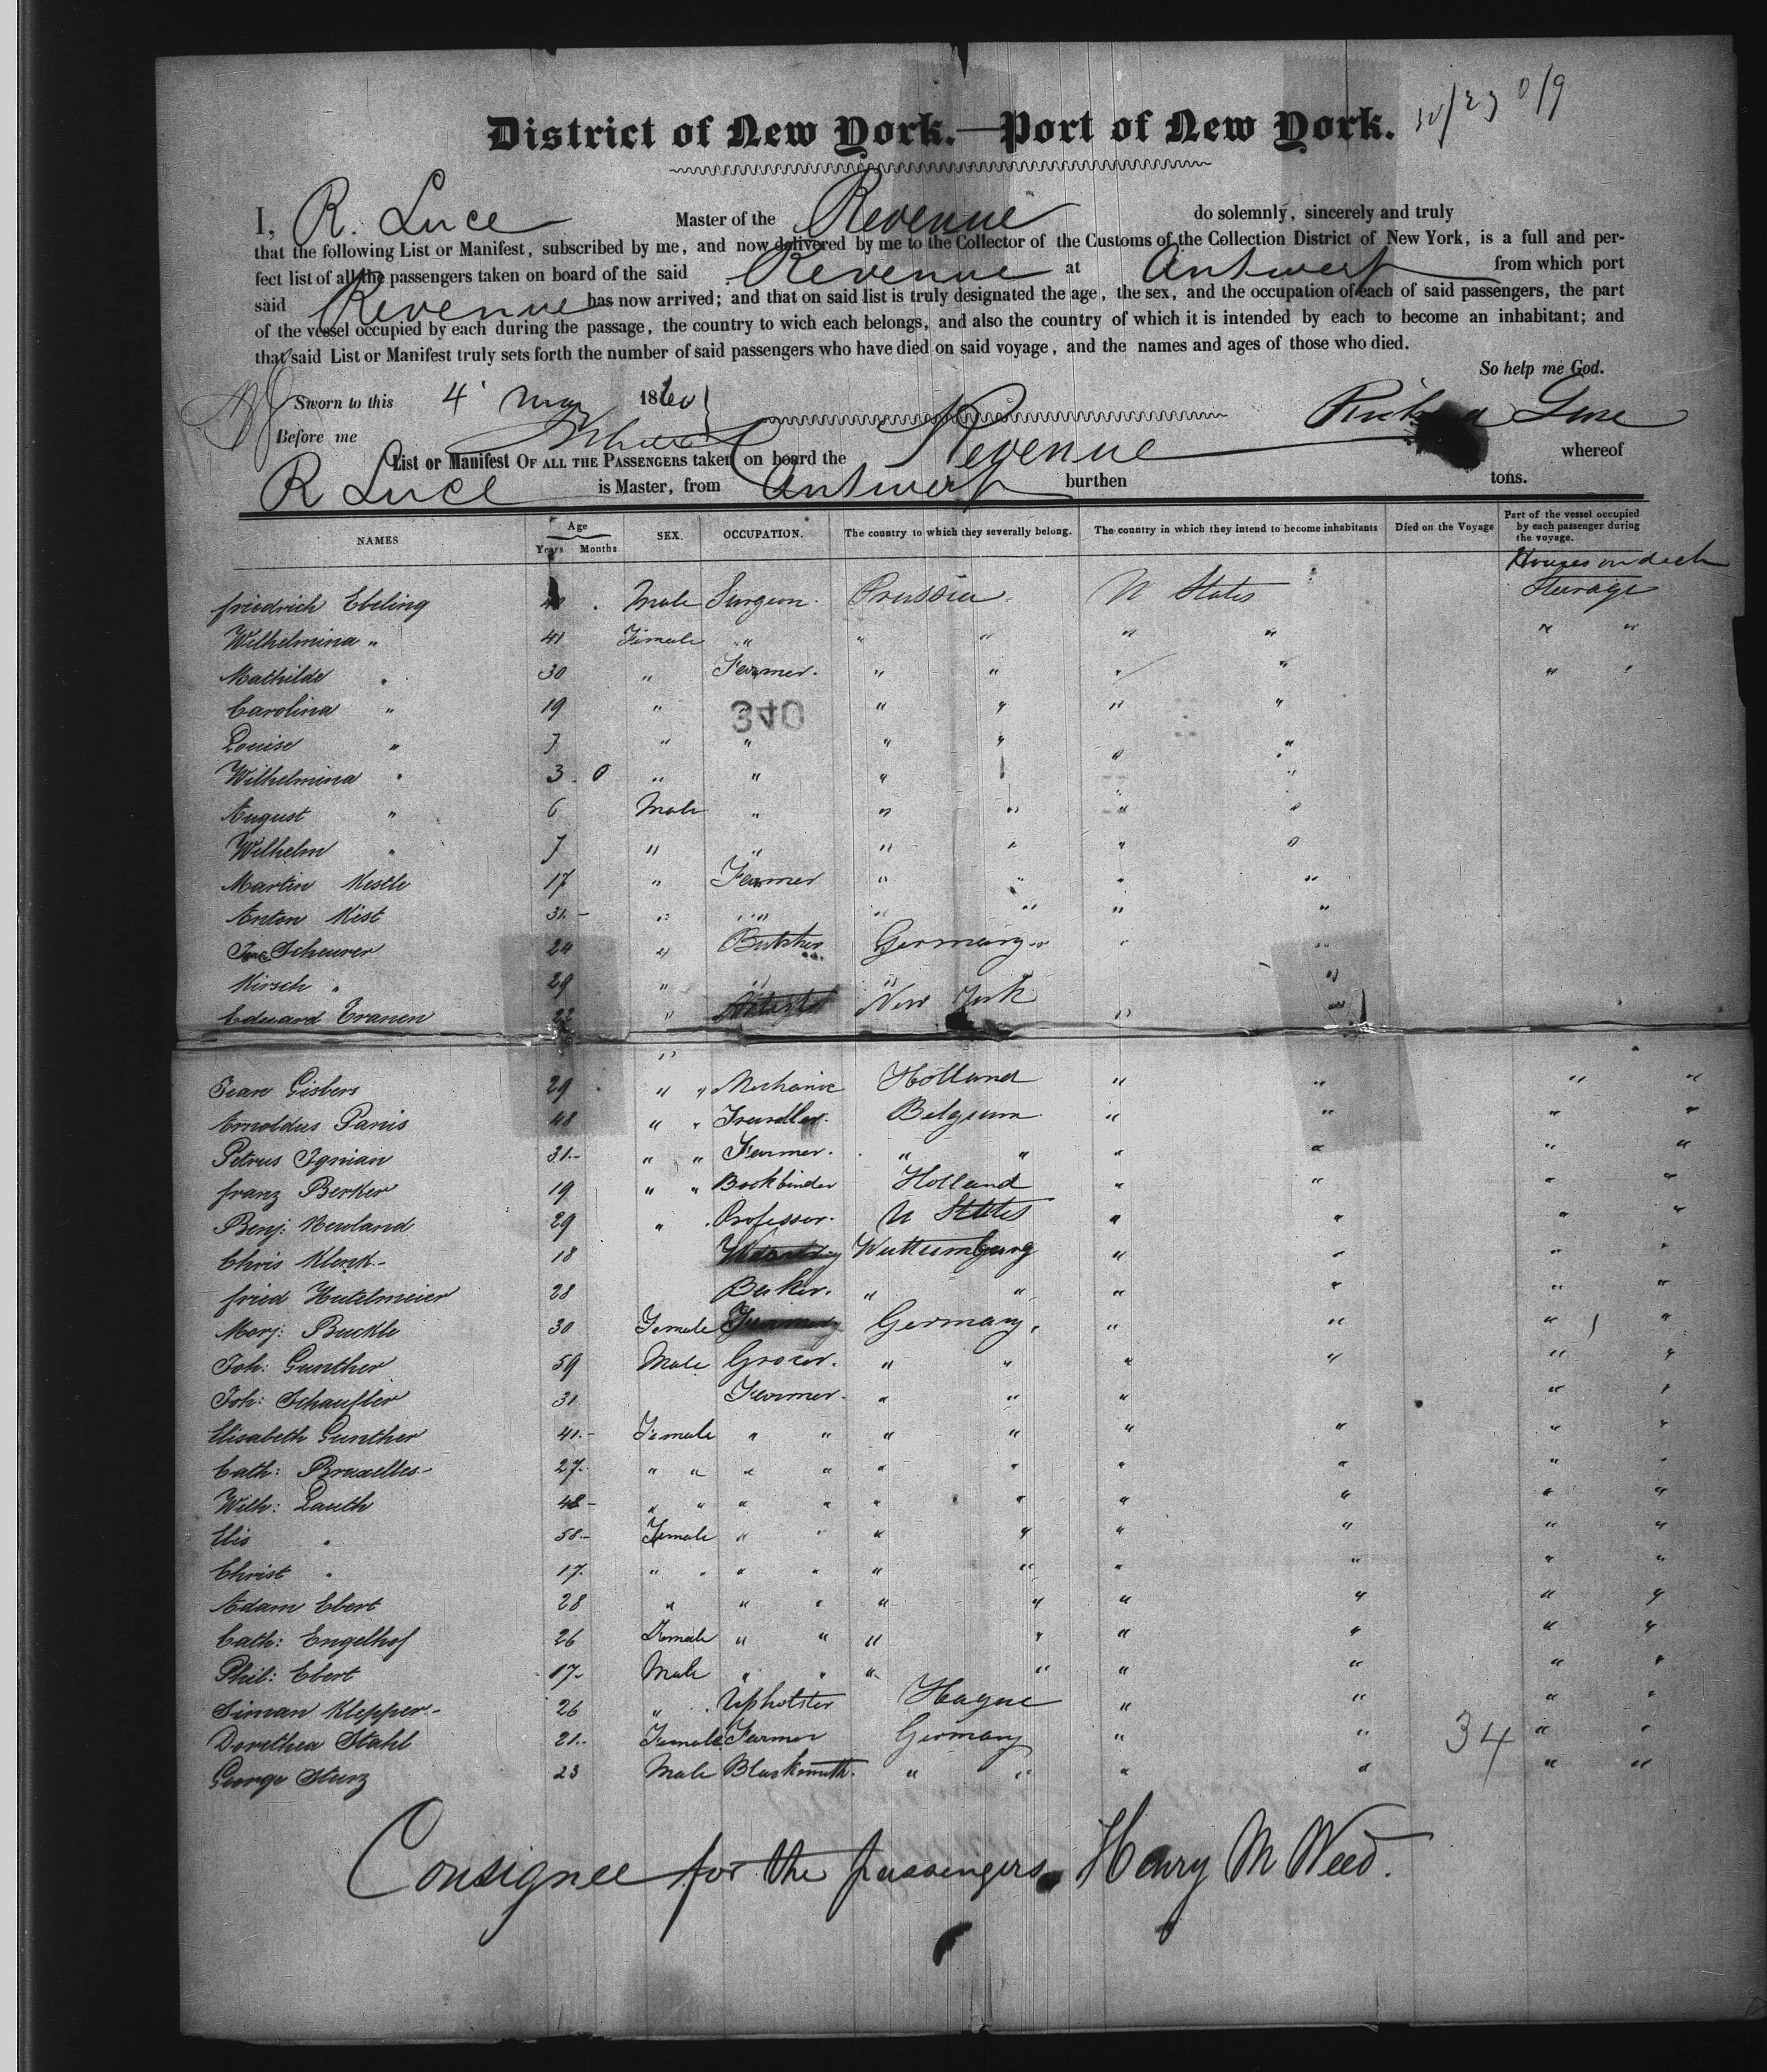 District of New York.—Port of New York.
I, R. Luce Master of the Revenue do solemnly, sincerely and truly
that the following List or Manifest, subscribed by me, and now delivered by me to the Collector of the Customs of the Collection District of New York, is a full and per-
fect list of all the passengers taken on board of the said Revenue at Antwerp from which port
said Revenue has now arrived; and that on said list is truly designated the age, the sex, and the occupation of each of said passengers, the part
of the vessel occupied by each during the passage, the country to wich each belongs, and also the country of which it is intended by each to become an inhabitant; and
that said List or Manifest truly sets forth the number of said passengers who have died on said voyage, and the names and ages of those who died.
So help me God.
Sworn to this 4 May 1860
Before me
List or Manifest OF ALL THE PASSENGERS taken on board the Revenue whereof
R Luce is Master, from Antwerp burthen tons.
NAMES Age Years Months SEX. OCCUPATION. The country to which they severally belong. The country in which they intend to become inhabitants Died on the Voyage Part of the vessel occupied by each passenger during the voyage.
Houses on deck
friedrich Ebeling Male Surgeon. Prussia U States Steerage
Wilhelmina " 41 Female " " " " " " "
Mathilde " 30 " Farmer. " " " " " "
Carolina " 19 " " " " " "
340
Louise " 7 " " " " " "
Wilhelmina " 3. 0 " " " "
August " 6 Male " " " " "
Wilhelm " 7 " " " " " "
Martin Kestle 17 " Farmer " " " "
Anton Kist 31.- " " " " " "
Scheurer 24 " Butcher Germany " "
Kirsch " 29 " " " "
Eduard Tranen 22 " New York " "
Jean Gisbers 29 " " Mechanic Holland " " " "
Arnoldus Panis 48 " " Traveller. Belgium. " " " "
Petrus Ignian 31.- " " Farmer. " " " " " "
franz Berker 19 " " Bookbinder Holland " " " "
Benj: Newland 29 " Professor. U States " " " "
Chris Klenk.- 18 Wuttemburg " " " "
fried Hutelmeier 28 Baker. " " " " " "
Marj: Buckle 30 Female Germany. " " " "
Joh: Gunther 59 Male Grocer. " " " " " "
Joh: Schaufler 31 Farmer. " " " " "
Elisabeth Gunther 41.- Female " " " " " " " "
Cath: Bruxelles- 27. " " " " " " " " " "
Wilh: Lauth 48- " " " " " " " " " "
Elis " 58- Female " " " " " " " "
Christ " 17. " " " " " " " " " "
Adam Ebert 28 " " " " " " " " "
Cath: Engelhof 26 Female " " " " " " " "
Phil: Ebert 17- Male " " " " " " " "
Siman Klepper- 26 " Upholster Hague " " " "
Dorethea Stahl 21.. Female Farmer Germany " " 34 " "
George Sturz 23 Male Blacksmith. " " " " " "
Consignee for the passengers Henry M Weed.